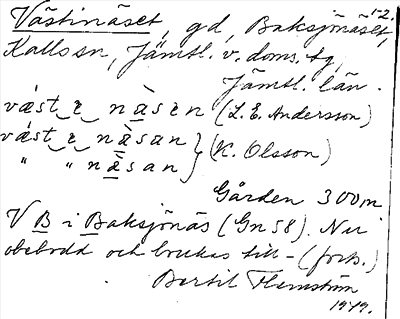 1-2.
Västinäset, gd, Baksjönäset,
Kalls sn, Jämtl. v. doms. tg,
Jämtl. län.
väst e näsen (L. E. Andersson)
väst e näsan } (K. Olsson)
" " näsan
Gården 300 m
V B i Baksjönäs (Gn 58). Nu
obebodd och brukas till- (forts.)
Bertil Flemström
1979.